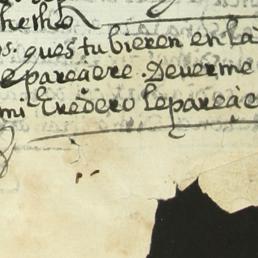 hecho
os. ques tubieren en la
e pareçere. Deverme
mi eredero le pareçe